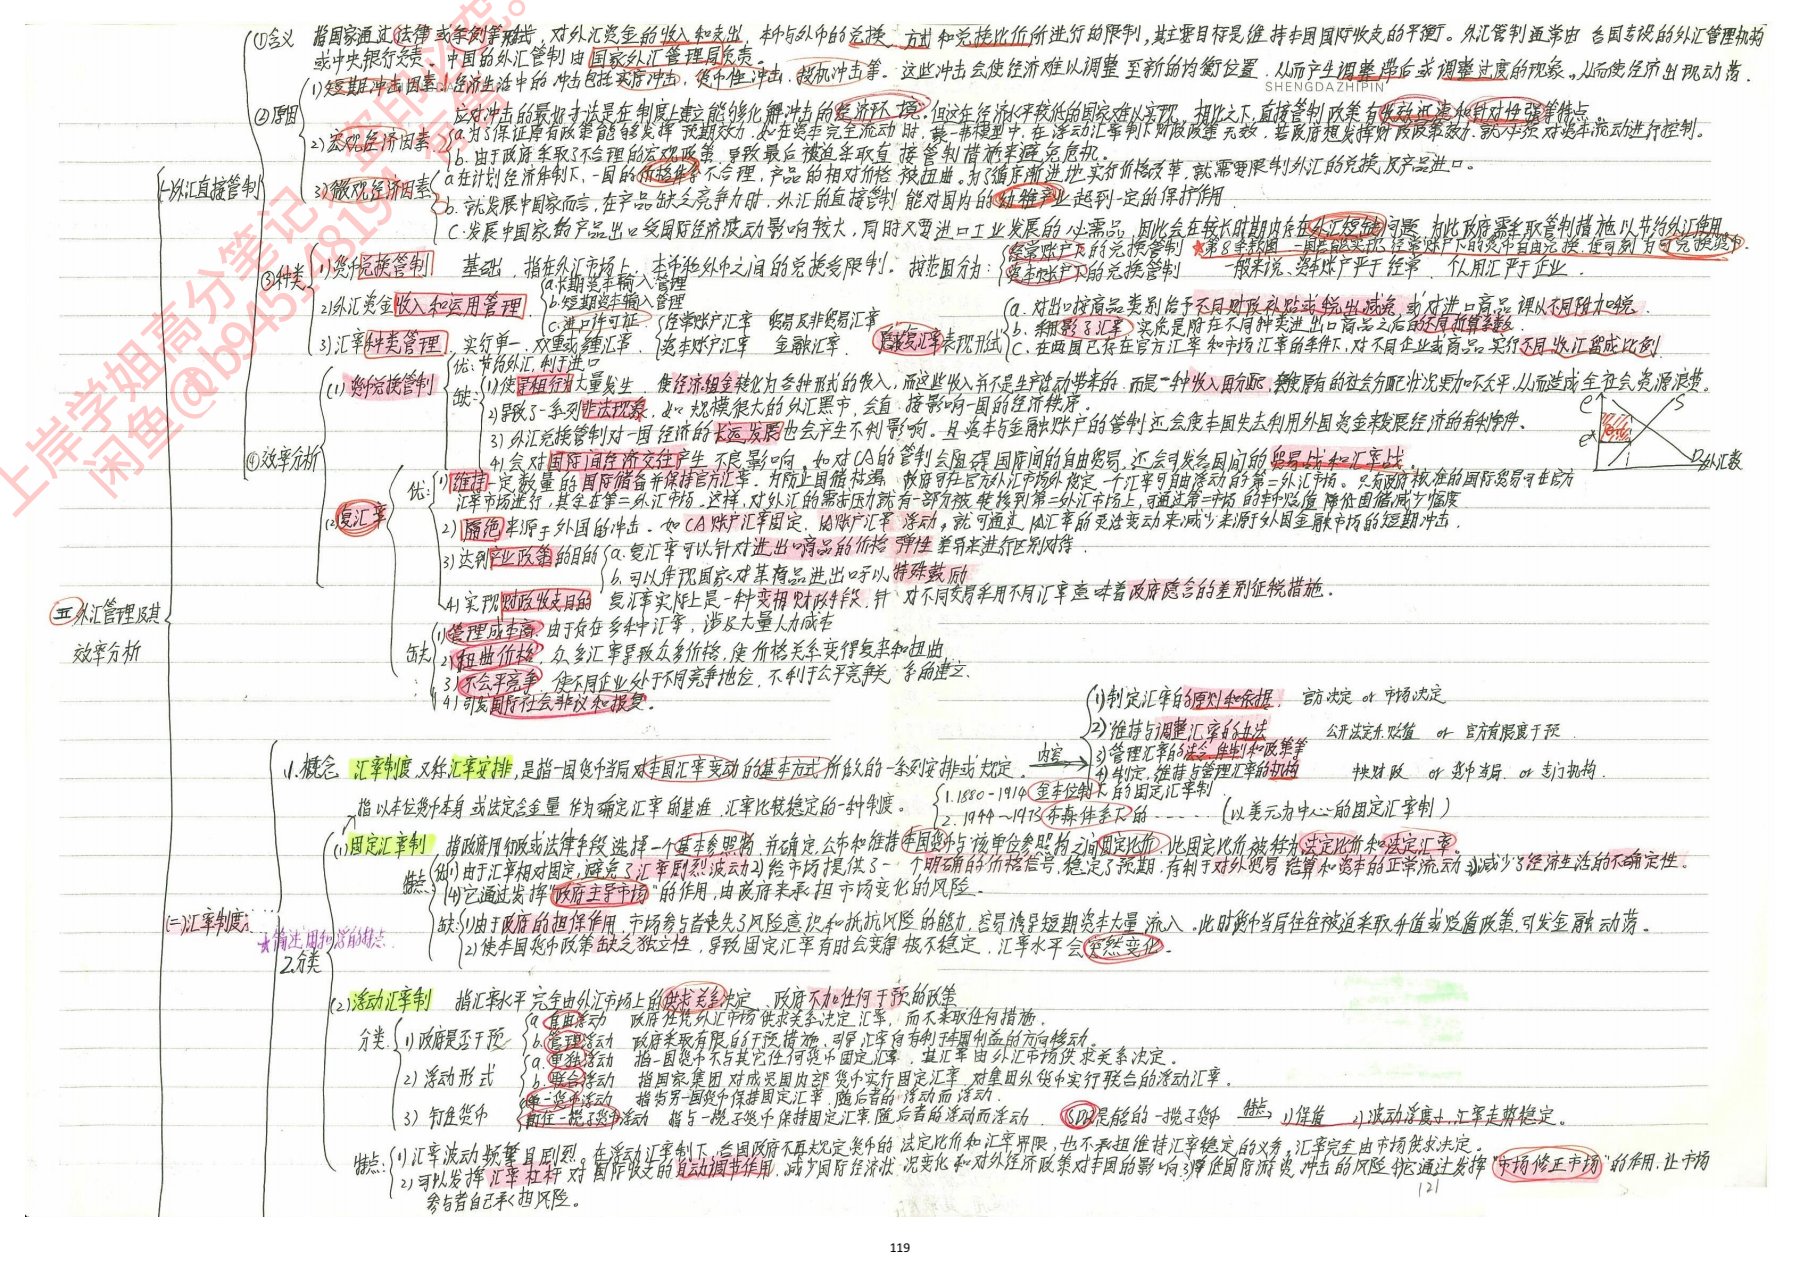 ①含义 指国家通过法律或条例等形式，对外汇资金的收入和支出，本币与外币的兑换方式和兑换比价所进行的限制，其主要目标是维持本国国际收支的平衡。外汇管制通常由各国专设的外汇管理机构
或中央银行负责。中国的外汇管制由国家外汇管理局负责。
1)短期冲击因素：经济生活中的冲击包括实际冲击、货币性冲击、投机冲击等。这些冲击会使经济难以调整至新的均衡位置，从而产生调整滞后或调整过度的现象。从而使经济出现动荡。
SHENGDAZHIPIN
②原因
应对冲击的最好方法是在制度上建立能够化解冲击的经济环境。但这在经济水平较低的国家难以实现，相比之下，直接管制政策有收效迅速和针对性强等特点。
2)宏观经济因素 a.为了保证原有政策能够发挥预期效力，如在资本完全流动时，蒙-弗模型中，在浮动汇率制下财政政策无效，若政府想发挥财政政策效力，就必须对资本流动进行控制。
b.由于政府采取了不合理的宏观政策，导致最后被迫采取直接管制措施来避免危机。
(一)外汇直接管制
3)微观经济因素 a.在计划经济体制下，一国的价格体系不合理，产品的相对价格被扭曲。为了循序渐进地实行价格改革，就需要限制外汇的兑换及产品进口。
b.就发展中国家而言，在产品缺乏竞争力时，外汇的直接管制能对国内的幼稚产业起到一定的保护作用
C.发展中国家的产品出口受国际经济波动影响较大，同时又要进口工业发展的必需品，因此会在较长时期内存在外汇短缺问题，为此政府需采取管制措施以节约外汇使用
③种类 1)货币兑换管制 基础，指在外汇市场上，本币和外币之间的兑换受限制。按范围分为：经常账户下的兑换管制 ★第8条款国：一国若能实现经常账户下的货币自由兑换，便可列为可兑换货币。
资本账户下的兑换管制 一般来说，资本账户严于经常，个人用汇严于企业.
2)外汇资金收入和运用管理 a.长期资本输入管理
b.短期资本输入管理
c.进口许可证.
3)汇率种类管理，实行单一、双重或多重汇率. 经常账户汇率 贸易及非贸易汇率
资本账户汇率 金融汇率.
复汇率表现形式 a.对出口按商品类别给予不同财政补贴或税出减免，或对进口商品课以不同附加税.
b.影子汇率，实质是附在不同种类进出口商品之后的不同折算系数.
C.在两国已存在官方汇率和市场汇率的条件下，对不同企业或商品实行不同收汇留成比例
④效率分析
(1)货币兑换管制 优：节约外汇，利于进口
缺：1)使寻租行为大量发生 使经济租金转化为各种形式的收入，而这些收入并不是生产活动带来的，而是一种收入再分配，使原有的社会分配状况更加不公平，从而造成全社会资源浪费。
2)导致了一系列非法现象，如规模很大的外汇黑市，会直接影响一国的经济秩序.
3)外汇兑换管制对一国经济的长远发展也会产生不利影响。且资本与金融账户的管制还会使本国失去利用外国资金来发展经济的有利条件。
4)会对国际间经济交往产生不良影响，如对CA的管制会阻碍国际间的自由贸易，还会引发各国间的贸易战和汇率战。
e S e* D 外汇数
(2)复汇率 优：1)维持一定数量的国际储备并保持官方汇率。为防止国储枯竭，政府可在官方外汇市场外稳定一个汇率可自由浮动的第二外汇市场。只有政府核准的国际贸易可在官方
汇率市场进行，其余在第二外汇市场，这样，对外汇的需求压力就有一部分被转移到第二外汇市场上，可通过第二市场的本币贬值降低国储减少幅度
2)隔绝来源于外国的冲击，如CA账户汇率固定，KA账户汇率浮动，就可通过KA汇率的灵活变动来减少来源于外国金融市场的短期冲击.
3)达到产业政策的目的 a.复汇率可以针对进出口商品的价格弹性差异来进行区别对待.
b.可以体现国家对某商品进出口予以特殊鼓励
4)实现财政收支目的 复汇率实际上是一种变相财政手段，针对不同交易采用不同汇率意味着政府隐含的差别征税措施.
缺 1)管理成本高.由于存在多种汇率，涉及大量人力成本
2)扭曲价格，众多汇率导致众多价格，使价格关系变得复杂和扭曲
3)不公平竞争，使不同企业处于不同竞争地位，不利于公平竞争关系的建立.
4)引发国际社会非议和报复。
五 外汇管理及其
效率分析
(二)汇率制度
1.概念 汇率制度，又称汇率安排，是指一国货币当局对本国汇率变动的基本方式所做的一系列安排或规定。
内容
1)制定汇率的原则和依据. 官方决定 or 市场决定
2)维持与调整汇率的办法 公开法定升贬值 or 官方有限度干预
3)管理汇率的法令、体制和政策等
4)制定、维持与管理汇率的机构 中央财政 or 货币当局 or 专门机构.
指以本位货币本身或法定含金量作为确定汇率的基准，汇率比较稳定的一种制度。
1.1880-1914 金本位制下的固定汇率制
2.1944~1973 布森体系下的------(以美元为中心的固定汇率制)
2.分类
★简述固和浮的特点.
(1)固定汇率制 指政府用行政或法律手段选择一个基本参照物，并确定、公布和维持本国货币与该单位参照物之间固定比价，此固定比价被称为法定比价和法定汇率。
特点 优 1)由于汇率相对固定，避免了汇率剧烈波动 2)给市场提供了一个明确的价格信号，稳定了预期，有利于对外贸易结算和资本的正常流动 3)减少了经济生活的不确定性.
(4)它通过发挥"政府主导市场"的作用，由政府来承担市场变化的风险。
缺：1)由于政府的担保作用，市场参与者丧失了风险意识和抵抗风险的能力，容易诱导短期资本大量流入。此时货币当局往往被迫采取升值或贬值政策，引发金融动荡。
2)使本国货币政策缺乏独立性，导致固定汇率有时会变得极不稳定，汇率水平会突然变化.
(2)浮动汇率制 指汇率水平完全由外汇市场上的供求关系决定、政府不加任何干预的政策
分类 1)政府是否干预 a.自由浮动 政府任凭外汇市场供求关系决定汇率，而不采取任何措施.
b.管理浮动 政府采取有限的干预措施，引导汇率向有利于本国利益的方向移动.
2)浮动形式 a.单独浮动 指一国货币不与其它任何货币固定汇率，其汇率由外汇市场供求关系决定.
b.联合浮动 指国家集团对成员国内部货币实行固定汇率，对集团外货币实行联合的浮动汇率.
3)钉住货币 单一货币浮动 指与另一国货币保持固定汇率，随后者的浮动而浮动.
钉住一揽子货币浮动 指与一揽子货币保持固定汇率，随后者的浮动而浮动. SDR是船的一揽子货币 特点→ 1)保值 2)波动浮度小，汇率走势稳定.
特点：1)汇率波动频繁且剧烈。在浮动汇率制下，各国政府不再规定货币的法定比价和汇率界限，也不承担维持汇率稳定的义务，汇率完全由市场供求决定.
2)可以发挥汇率杠杆对国际收支的自动调节作用，减少国际经济状况变化和对外经济政策对本国的影响 3)降低国际游资冲击的风险 4)它通过发挥"市场修正市场"的作用，让市场
参与者自己承担风险。
121
119
上岸学姐高分笔记
闲鱼@b94514819